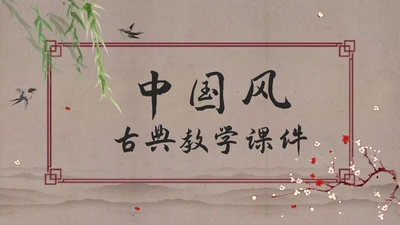 中国风
古典教学课件